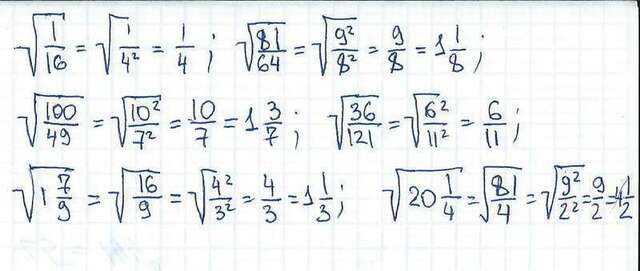 √(1/16) = √(1/4²) = 1/4 ; √(81/64) = √(9²/8²) = 9/8 = 1 1/8 ;
√(100/49) = √(10²/7²) = 10/7 = 1 3/7 ; √(36/121) = √(6²/11²) = 6/11 ;
√(1 7/9) = √(16/9) = √(4²/3²) = 4/3 = 1 1/3 ; √(20 1/4) = √(81/4) = √(9²/2²) = 9/2 = 4 1/2